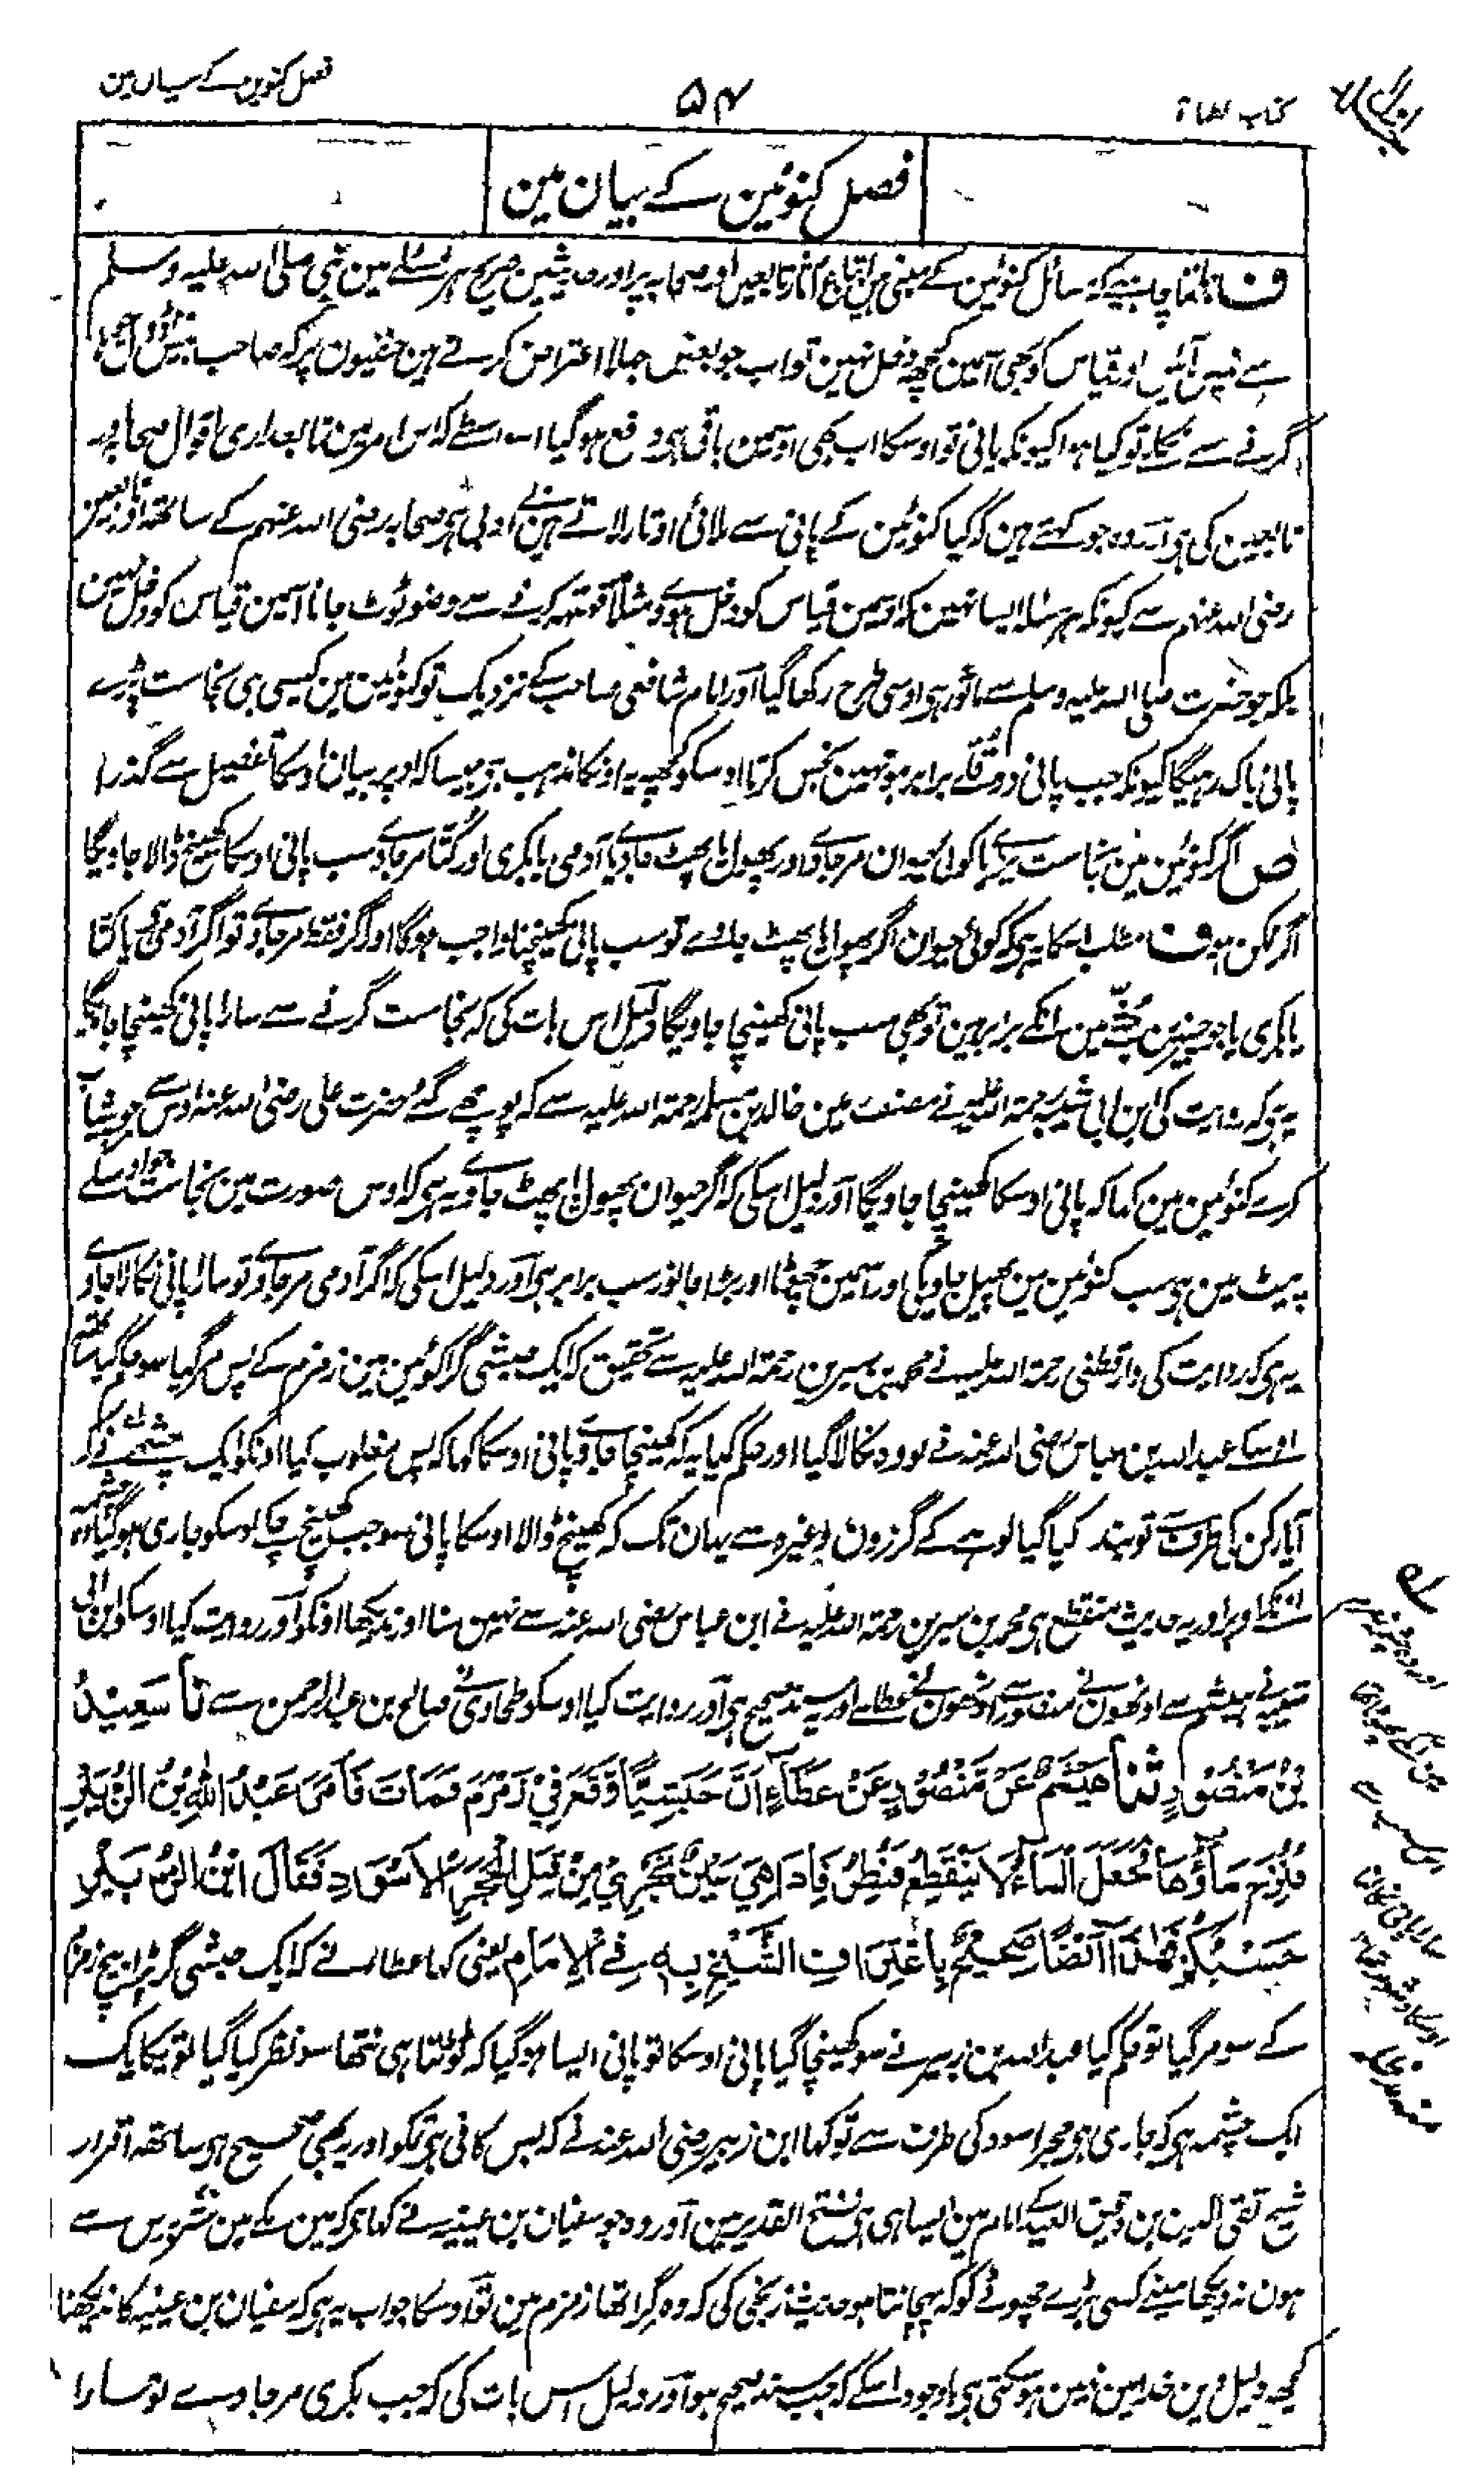 فصل کنوین کے بیان مین
۵۴
کتاب الطہارۃ
فصل کنوئین کے بیان مین
ف جاننا چاہیے کہ مسائل کنوئین کے مبنی ہین اتباع آثار تابعین اور صحابہ پر اور حدیثین صحیح ہر مسئلے مین نبی صلی اللہ علیہ وسلم
سے نہیں آئیں اور قیاس کو بھی اسمین کچھ دخل نہین تو اب جو بعضے جہلا اعتراض کرتے ہین حنفیون پر کہ صاحب بیس ڈول
گرنے سے نکلے تو کیا ہوا کیونکہ پانی تو اوسکا اب بھی اوسمین باقی ہی دفع ہو گیا اسواسطے کہ اس امر مین تابعداری اقوال صحابہ اور
تابعین کی ہی اور وہ جو کہتے ہین کہ گویا کنوئین کے پانی سے ملائی اوتار لاتے ہین بے ادبی ہی صحابہ رضی اللہ عنہم کے ساتھ اور تابعین
رضی اللہ عنہم سے کیونکہ ہر مسئلہ ایسا نہین کہ اوسمین قیاس کو دخل ہووے مثلاً قہقہہ کرنے سے وضو ٹوٹ جانا اسمین قیاس کو دخل نہین
بلکہ جو حضرت صلی اللہ علیہ وسلم سے ماثور ہی اوسی طرح رکھا گیا اور امام شافعی صاحب کے نزدیک تو کنوئین مین کیسی ہی نجاست پڑے
پانی پاک رہیگا کیونکہ جب پانی دو قلے برابر ہو نہین نجس کرتا اوسکو کچھ یہ اونکا مذہب ہی جیسا کہ اوپر بیان اوسکا تفصیل سے گذرا
ص اگر کنوئین مین نجاست پڑے یا کوئی حیوان مر جاوے اور پھول یا پھٹ جاوے یا آدمی یا بکری اور کتا مر جاوے سب پانی اوسکا کھینچ ڈالا جاویگا
اگر ممکن ہو ف مطلب اسکا یہ ہی کہ کوئی حیوان اگر پھول یا پھٹ جاوے تو سب پانی کھینچنا واجب ہوگا اور اگر فقط مر جاوے تو اگر آدمی ہی یا کتا
یا بکری یا جو چیزین جثے مین انکے برابر ہین تو بھی سب پانی کھینچا جاویگا دلیل اس بات کی کہ نجاست گرنے سے سارا پانی کھینچا جاویگا
یہ ہی کہ روایت کی ابن ابی شیبہ رحمۃ اللہ علیہ نے مصنف مین خالد بن مسلمہ رحمۃ اللہ علیہ سے کہ پوچھے گئے حضرت علی رضی اللہ عنہ اوس سے جو پیشاب
کرے کنوئین مین کہا کہ پانی اوسکا کھینچا جاویگا اور دلیل اسکی کہ اگر حیوان پھول یا پھٹ جاوے یہ ہی کہ اوس صورت مین نجاست جو اوسکے
پیٹ مین ہی سب کنوئین مین پھیل جاویگی اور اسمین چھوٹا اور بڑا جانور سب برابر ہی اور دلیل اسکی کہ اگر آدمی مر جاوے تو سارا پانی نکالا جاوے
یہ ہی کہ روایت کی دارقطنی رحمۃ اللہ علیہ نے محمد بن سیرین رحمۃ اللہ علیہ سے تحقیق کہ ایک حبشی گرا کنوئین مین زمزم کے پس مر گیا سو حکم کیا ساتھ
اوسکے عبداللہ بن عباس رضی اللہ عنہ نے سو وہ نکالا گیا اور حکم کیا یہ کہ کھینچا جاوے پانی اوسکا کہا کہ پس مغلوب کیا اونکو ایک چشمے نے کہ
آیا رکن کی طرف سے تو بند کیا گیا لوہے کے گرزون وغیرہ سے یہان تک کہ کھینچ ڈالا اوسکا پانی سو جب کھینچ چکے اوسکو جاری ہو گیا وہ چشمہ
انکے اوپر اور یہ حدیث منقطع ہی محمد بن سیرین رحمۃ اللہ علیہ نے ابن عباس رضی اللہ عنہ سے نہین سنا اور نہ دیکھا اونکو اور روایت کیا اوسکو ابن ابی
شیبہ نے ہیثم سے اونھون نے منصور سے اونھون نے عطا سے اور یہ سند صحیح ہی اور روایت کیا اوسکو طحاوی نے صالح بن عبد الرحمن سے نا سَعِیْدُ
بْنُ مَنْصُوْرٍ ثنا هَیْثَمٌ عَنْ مَّنْصُوْرٍ عَنْ عَطَآءٍ اَنَّ حَبَشِیًّا وَقَعَ فِیْ زَمْزَمَ فَمَاتَ فَاَمَرَ عَبْدُ اللّٰہِ بْنُ الزُّبَیْرِ
فَنُزِحَ مَآؤُهَا فَجَعَلَ الْمَآءُ لَا یَنْقَطِعُ فَنَظَرَ فَاِذَا هِیَ عَیْنٌ تَجْرِیْ مِنْ قِبَلِ الْحَجَرِ الْاَسْوَدِ فَقَالَ ابْنُ الزُّبَیْرِ
حَسْبُکُمْ وَهٰذَا اَیْضًا صَحِیْحٌ بِاعْتِرَافِ الشَّیْخِ بِہٖ فِی الْاِمَامِ یعنی کہا عطا نے کہ ایک حبشی گر پڑا بیچ زمزم
کے سو مر گیا تو حکم کیا عبداللہ بن زبیر نے سو کھینچا گیا پانی اوسکا تو پانی ایسا ہو گیا کہ ٹوٹتا ہی نتھا سو نظر کیا گیا تو یکایک
ایک چشمہ ہی کہ جاری ہی حجر اسود کی طرف سے تو کہا ابن زبیر رضی اللہ عنہ نے کہ بس کافی ہی تمکو اور یہ بھی صحیح ہی ساتھ اقرار
شیخ تقی الدین بن دقیق العید کے امام مین ایسا ہی ہی فتح القدیر مین اور وہ جو سفیان بن عیینہ نے کہا ہی کہ مین مکے مین ستر برس سے
ہون نہ دیکھا مینے کسی بڑے چھوٹے کو کہ پہچانتا ہو حدیث زنجی کی کہ وہ گرا تھا زمزم مین تو اوسکا جواب یہ ہی کہ سفیان بن عیینہ کا نہ دیکھنا
کچھ دلیل دین خدا مین نہین ہو سکتی ہی باوجود اسکے کہ جب سند صحیح ہو اور دلیل اس بات کی کہ جب بکری مر جاوے تو سارا